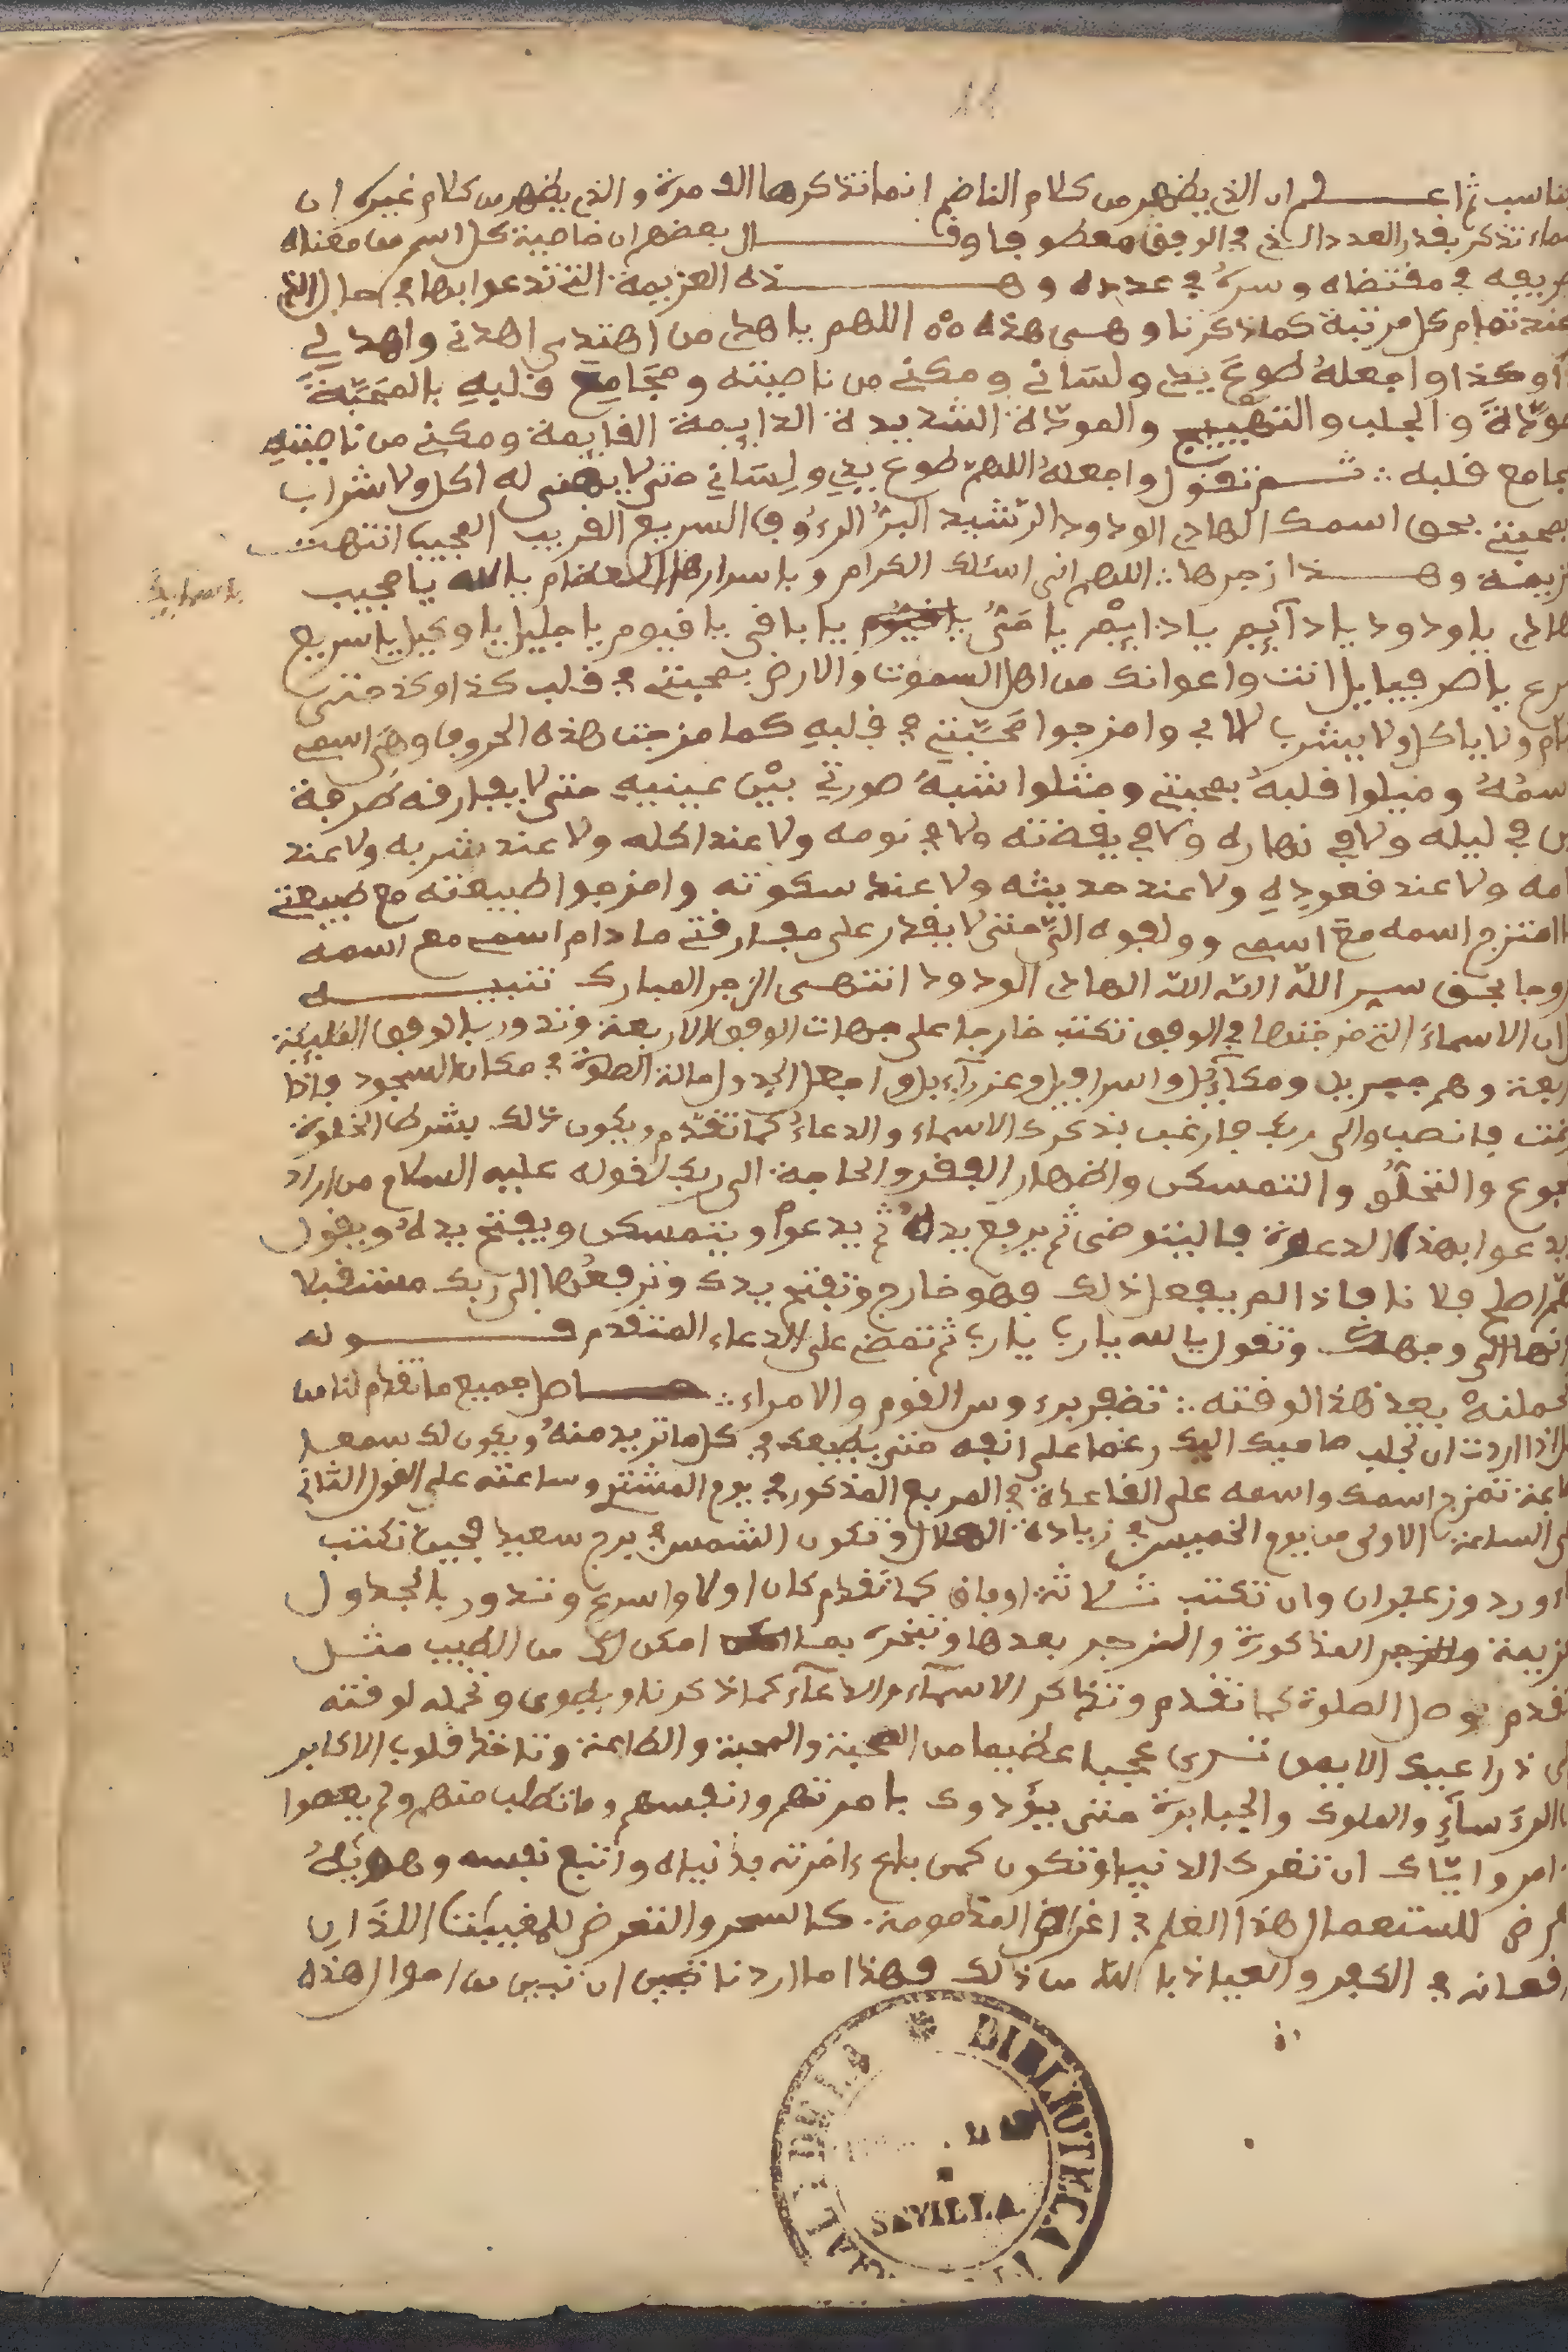 ناسب ثم اعلم ان الذي يظهر من كلام الناضم انما تذكرها الف مرة والذي يظهر من كلام غيره ان
ماء تذكر بقدر العدد الذي في الوفق معطوفا وقال بعضهم ان خاصية كل اسم من معناه
ريفه في مقتضاه وسره في عدده وهذه العزيمة التي تدعوا بها في حال
عند تمام كل مرتبة كما ذكرنا وهي هذه اللهم يا هادي من اهتدى اهدني واهد لي
او كذا واجعله طوع يدي ولساني ومكني من ناصيته ومجامع قلبه بالمحبة
مودة والجلب والتهييج والمودة الشديدة الدايمة القايمة ومكني من ناصيته
جامع قلبه ∴ ثم تقول واجعله اللهم طوع يدي ولساني حتى لا يهنى له اكل ولا شراب
بمحبتي بحق اسمك الهادي الودود الرشيد البر الرءوف السريع القريب المجيب انتهت
زيمة وهذا زجرها ∴ اللهم اني اسئلك الكرام وباسرارها العظام يا الله يا مجيب
هادي يا ودود يا دآيم يا دايم يا حي يا قيوم يا باقي يا قيوم يا جليل يا وكيل يا سريع
رع يا صرفيايل انت واعوانك من اهل السموت والارض بمحبتي في قلب كذا وكذا حتى
نام ولا ياكل ولا يشرب الا بي وامزجوا محبتي في قلبه كما مزجت هذه الحروف وهي اسمي
سمه وميلوا قلبه بمحبتي ومثلوا شبه صورتي بين عينيه حتى لا يفارقه طرفة
ين في ليله ولا في نهاره ولا في يقضته ولا في نومه ولا عند اكله ولا عند شربه ولا عند
امه ولا عند قعوده ولا عند حديثه ولا عند سكوته وامزجوا طبيعته مع طبيعتي
ا امتزج اسمه مع اسمي وولفوه الي حتى لا يقدر على مفارقتي ما دام اسمي مع اسمه
وجا بحق سير الله الله الله الهادي الودود انتهى الزجر المبارك تنبيه
ان الاسماء التي مزجتها في الوفق تكتب خارجا على جهات الوفق الاربعة وتدور بالوفق الملايكة
ربعة وهم جبريل ومكآئل واسرافيل وعزرآءيل واجعل الجدول حالة الصلوة في مكان السجود فاذا
رغت فانصب والى ربك فارغب بذكرك الاسماء والدعاء كما تقدم ويكون ذلك بشرط الخلوة
جوع والتخلق والتمسكن واظهار الفقر والحاجة الى ربك لقوله عليه السلام من اراد
يدعوا بهذا الدعوة فاليتوضى ثم يرفع يده ثم يدعوا ويتمسكن ويفتح يده ويقول
هم اصلح فلانا فاذا لم يفعل ذلك فهو خارج وتفتح يدك وترفعها الى ربك مستقبلا
انها الى وجهك وتقول يا لله يا رب يا رب ثم تمض على الدعاء المتقدم قوله
حملنه بعد هذا لوقته ∴ تضفر برءوس القوم والامراء ∴ حاصل جميع ما تقدم لنا من
ل اذا اردت ان تجلب صاحبك اليك رغما على انفه حتى يطيعك في كل ما تريد منه ويكون لك سمعا
اعة تمزج اسمك واسمه على القاعدة في المربع المذكور في يوم المشتري وساعته على القول الثاني
ى الساعة الاولى من يوم الخميس في زيادة الهلال وتكون الشمس في برج سعيد فحين تكتب
اورد وزعفران وان تكتب ثلاثة اوفاق كما تقدم كان اولا واسرع وتدور بالجدول
زيمة والزجر المذكورة والزجر بعدها وتبخره بما امكن لك من الطيب مثل
قدم وصل الصلوة كما تقدم وتذاكر الاسمآء والدعآء كما ذكرنا ويطوى وتحمله لوقته
لى ذراعيك الايمن ترى عجبا عظيما من المحبة والمحبة والطاعة وتاخذ قلوب الاكابر
الرءسآء والملوك والجبابرة حتى يؤدوك بامرتهم وانفسهم وما تطلب منهم ولم يعصوا
امر واياك ان تغرك الدنيا وتكون كمن باع ءاخرته بدنياه واتبع نفسه وهويه
رض للستعمال هذا العلم في اغراض المذمومة كالسحر والتعرض للمغيبات اللذان
قعانه في الكفر والعياذ بالله من ذلك وهذا ما اردنا ان نبين من احوال هذه
BIBLIOTECA
SEVILLA